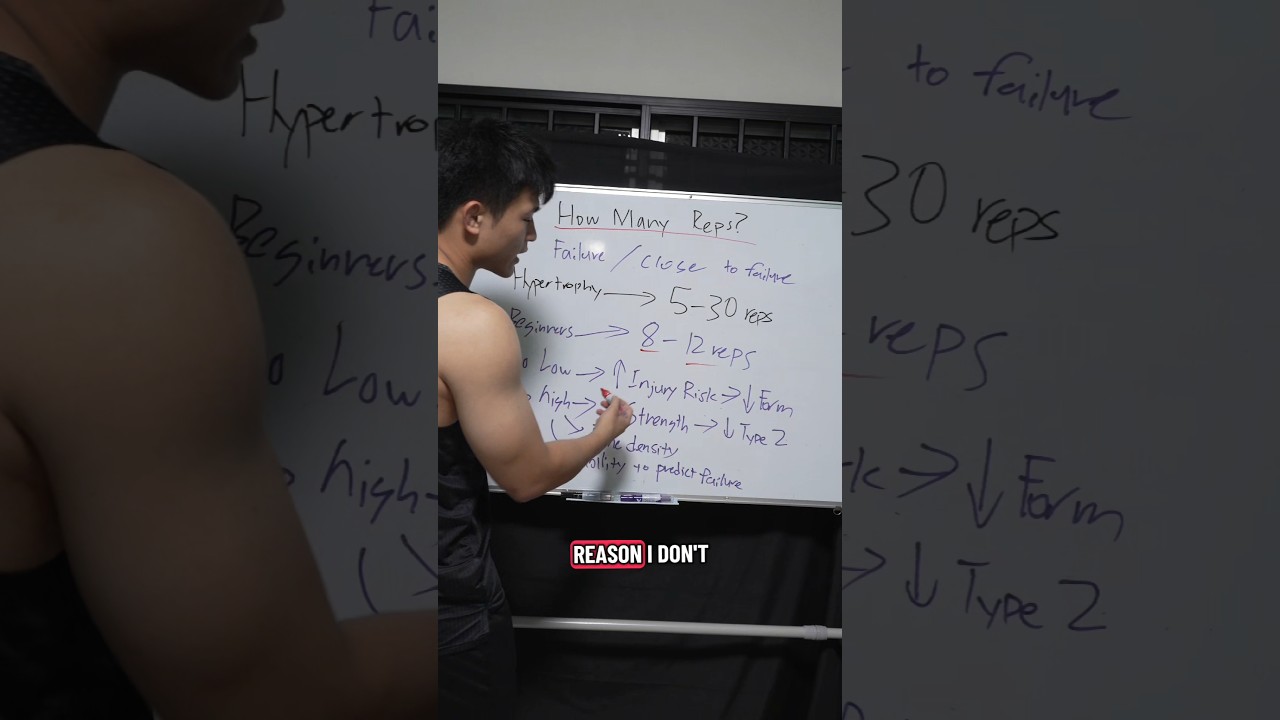 How Many Reps?
Failure / close to failure
Hypertrophy → 5-30 reps
Beginners → 8-12 reps
Low → ↑ Injury Risk → ↓ Form
high → Strength → ↓ Type 2
density
to predict failure
REASON I DON'T